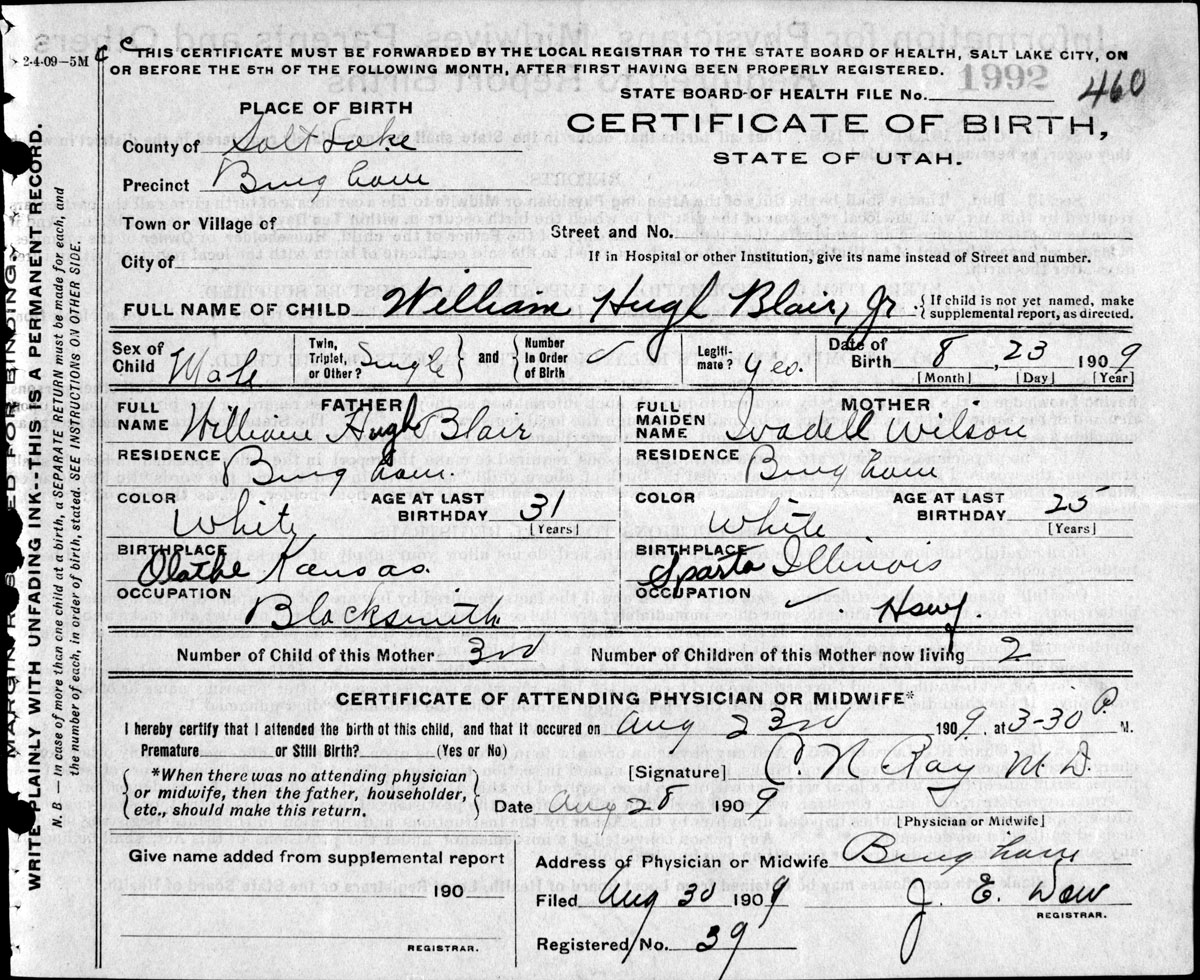 2-4-09–5M
THIS CERTIFICATE MUST BE FORWARDED BY THE LOCAL REGISTRAR TO THE STATE BOARD OF HEALTH, SALT LAKE CITY, ON
OR BEFORE THE 5TH OF THE FOLLOWING MONTH, AFTER FIRST HAVING BEEN PROPERLY REGISTERED.
1992
STATE BOARD OF HEALTH FILE No. 460
PLACE OF BIRTH
CERTIFICATE OF BIRTH,
STATE OF UTAH.
County of Salt Lake
Precinct Bingham
Town or Village of
Street and No.
City of
If in Hospital or other Institution, give its name instead of Street and number.
FULL NAME OF CHILD William Hugh Blair, Jr. { If child is not yet named, make supplemental report, as directed.
Sex of Child Male Twin, Triplet, or Other? Single } and { Number in Order of Birth Legiti-mate? Yes. Date of Birth 8, 23 1909
[Month] [Day] [Year]
FATHER
FULL NAME William Hugh Blair
RESIDENCE Bingham
COLOR White AGE AT LAST BIRTHDAY 31 [Years]
BIRTHPLACE Olathe Kansas.
OCCUPATION Blacksmith
MOTHER
FULL MAIDEN NAME Ivadell Wilson
RESIDENCE Bingham
COLOR White AGE AT LAST BIRTHDAY 25 [Years]
BIRTHPLACE Sparta Illinois
OCCUPATION Hswf.
Number of Child of this Mother 3rd Number of Children of this Mother now living 2
CERTIFICATE OF ATTENDING PHYSICIAN OR MIDWIFE*
I hereby certify that I attended the birth of this child, and that it occured on Aug 23rd 1909, at 3-30 P. M.
Premature or Still Birth? (Yes or No)
*When there was no attending physician
or midwife, then the father, householder,
etc., should make this return.
[Signature] Ray M.D.
Date Aug 28 1909
[Physician or Midwife]
Give name added from supplemental report
190
REGISTRAR.
Address of Physician or Midwife Bingham
Filed Aug 30 1909 J. E. Dow
REGISTRAR.
Registered No. 39
MARGIN RESERVED FOR BINDING
WRITE PLAINLY WITH UNFADING INK--THIS IS A PERMANENT RECORD.
N. B. — In case of more than one child at a birth, a SEPARATE RETURN must be made for each, and
the number of each, in order of birth, stated. SEE INSTRUCTIONS ON OTHER SIDE.